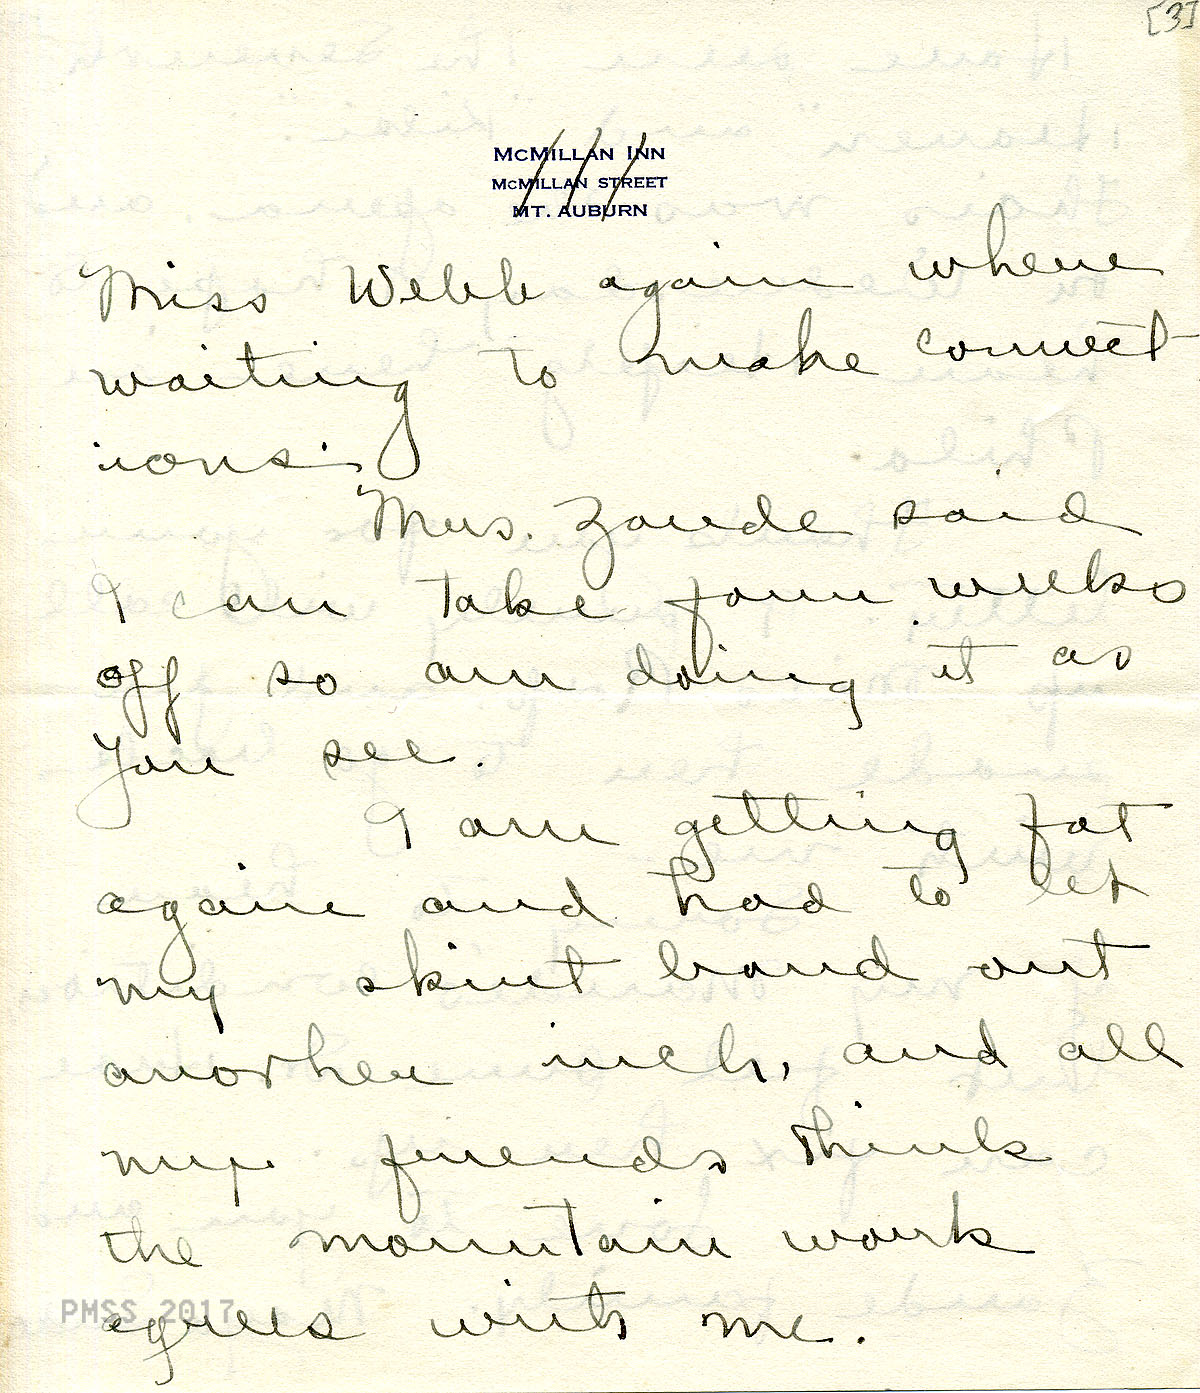 [3]
McMillan Inn
McMillan Street
Mt. Auburn
Miss Webb again where
waiting to make connect
ions.
Mrs. Zande said
I can take four weeks
off so am doing it as
you see.
I am getting fat
again and had to let
my skirt band out
another inch, and all
my friends think
the mountain work
agrees with me.
PMSS 2017